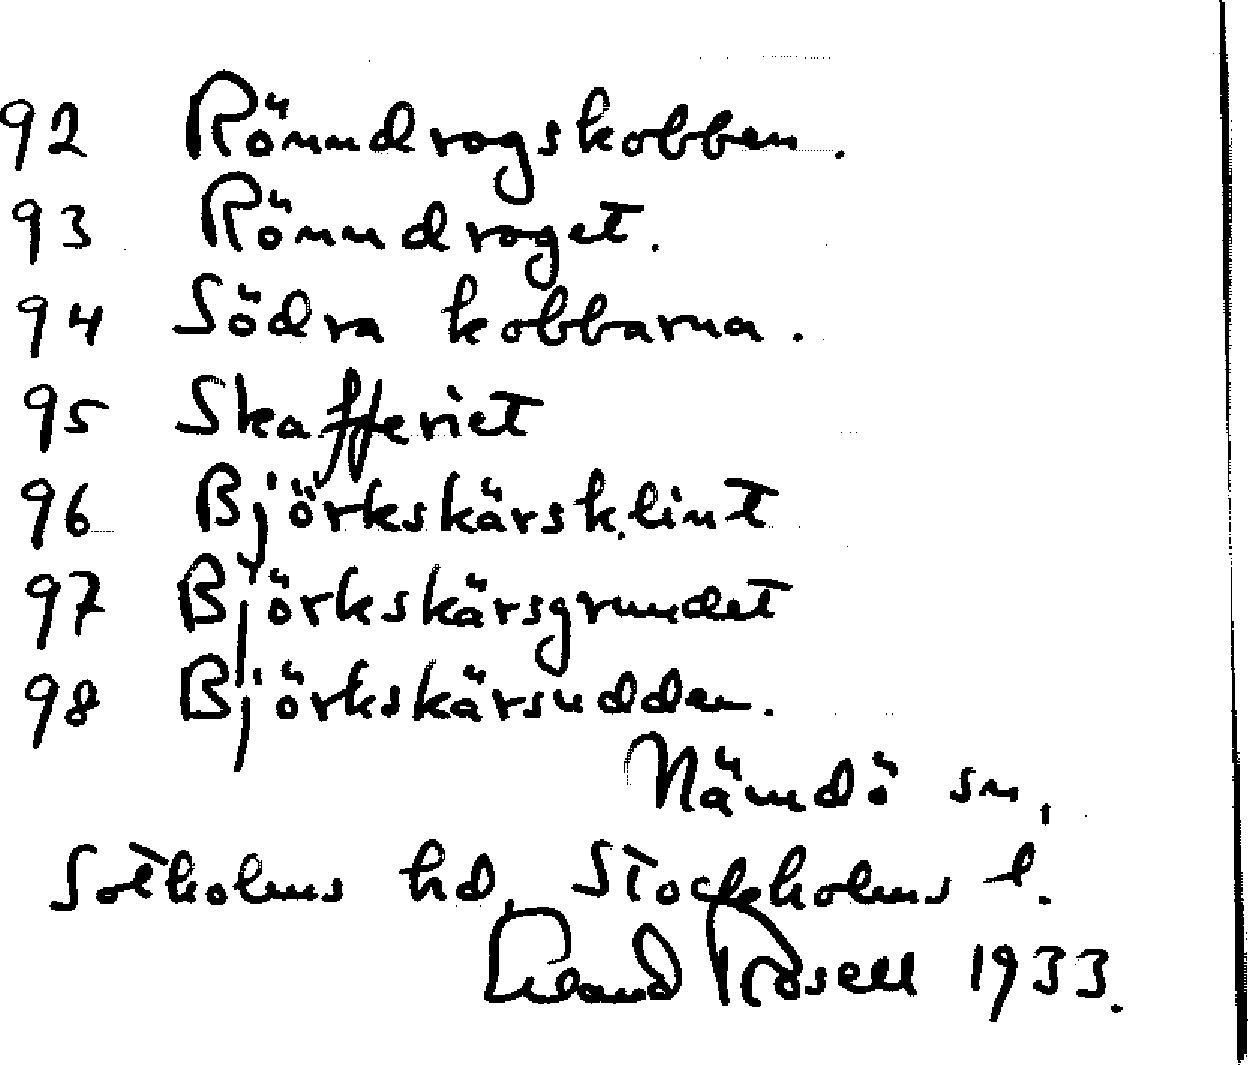 92 Rönndrogskobben.
93 Rönndroget.
94 Södra kobbarna.
95 Skafferiet
96 Björkskärsklint
97 Björkskärsgrundet
98 Björkskärsudden.
Nämdö sn,
Sotholms hd, Stockholms l.
Rosell 1933.